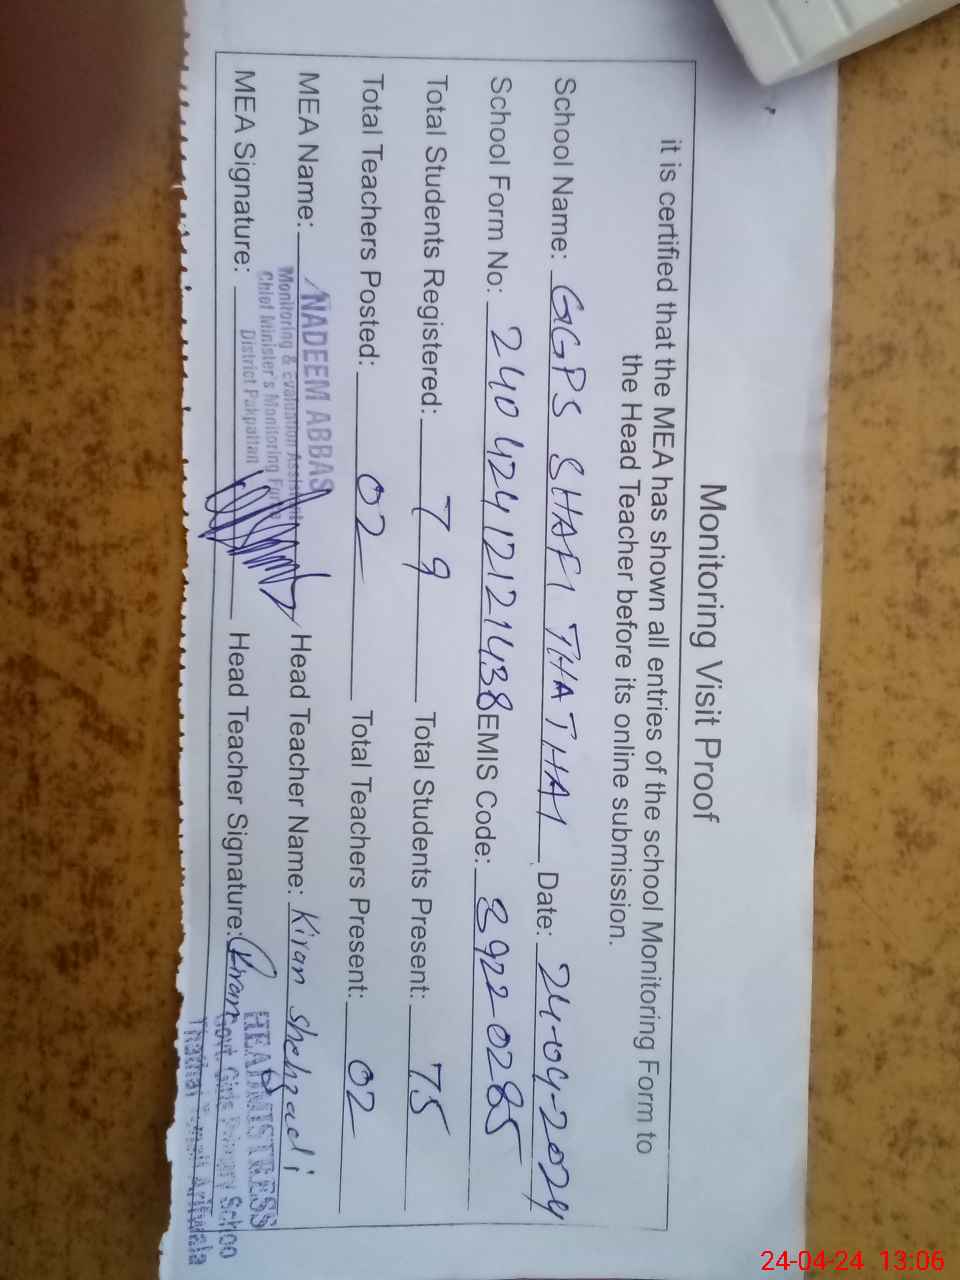 Monitoring Visit Proof
it is certified that the MEA has shown all entries of the school Monitoring Form to
the Head Teacher before its online submission.
School Name: GGPS SHAFI THATHAI Date: 24-04-2024
School Form No: 240424121221438 EMIS Code: 39220285
Total Students Registered: 79 Total Students Present: 75
Total Teachers Posted: 02 Total Teachers Present: 02
MEA Name: NADEEM ABBAS Head Teacher Name: Kiran Shehzadi
Monitoring & Evaluation Assistant
Chief Minister's Monitoring Force
District Pakpattan
MEA Signature: Head Teacher Signature: Kiran
HEADMISTRESS
Govt. Girls Primary School
24-04-24 13:06